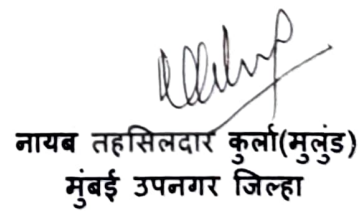 नायब तहसिलदार कुर्ला(मुलुंड)
मुंबई उपनगर जिल्हा